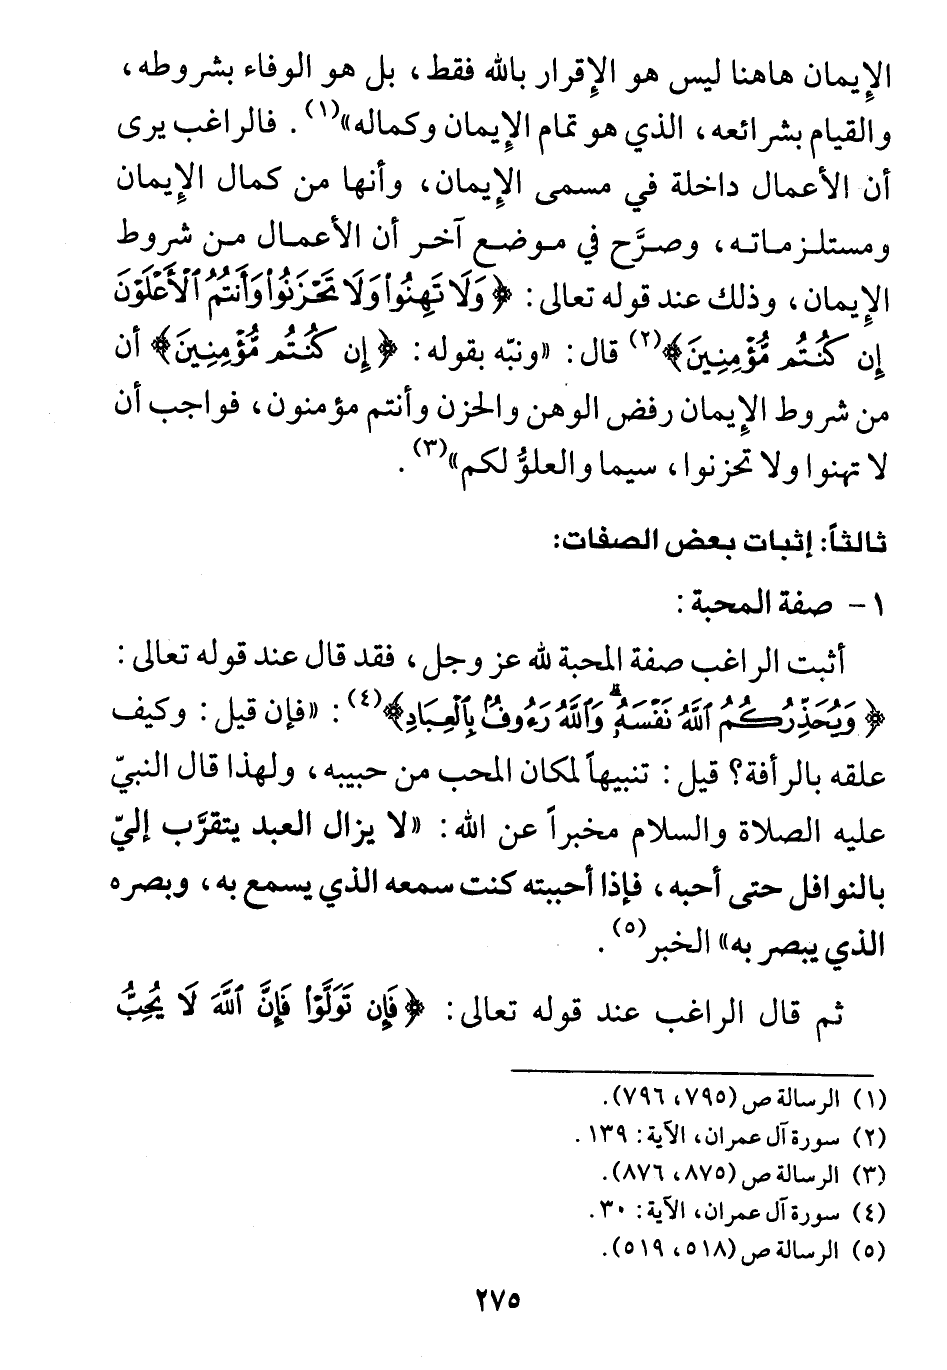 الإيمان هاهنا ليس هو الإقرار بالله فقط، بل هو الوفاء بشروطه،
والقيام بشرائعه، الذي هو تمام الإيمان وكماله»(١). فالراغب يرى
أن الأعمال داخلة في مسمى الإيمان، وأنها من كمال الإيمان
ومستلزماته، وصرَّح في موضع آخر أن الأعمال من شروط
الإيمان، وذلك عند قوله تعالى: ﴿وَلَا تَهِنُوا۟ وَلَا تَحْزَنُوا۟ وَأَنتُمُ ٱلْأَعْلَوْنَ
إِن كُنتُم مُّؤْمِنِينَ﴾(٢) قال: «ونبّه بقوله: ﴿إِن كُنتُم مُّؤْمِنِينَ﴾ أن
من شروط الإيمان رفض الوهن والحزن وأنتم مؤمنون، فواجب أن
لا تهنوا ولا تحزنوا، سيما والعلوُّ لكم»(٣).
ثالثاً: إثبات بعض الصفات:
١- صفة المحبة:
أثبت الراغب صفة المحبة لله عز وجل، فقد قال عند قوله تعالى:
﴿وَيُحَذِّرُكُمُ ٱللَّهُ نَفْسَهُۥ ۗ وَٱللَّهُ رَءُوفٌۢ بِٱلْعِبَادِ﴾(٤): «فإن قيل: وكيف
علقه بالرأفة؟ قيل: تنبيهاً لمكان المحب من حبيبه، ولهذا قال النبيّ
عليه الصلاة والسلام مخبراً عن الله: «لا يزال العبد يتقرَّب إليّ
بالنوافل حتى أحبه، فإذا أحببته كنت سمعه الذي يسمع به، وبصره
الذي يبصر به» الخبر(٥).
ثم قال الراغب عند قوله تعالى: ﴿فَإِن تَوَلَّوْا۟ فَإِنَّ ٱللَّهَ لَا يُحِبُّ
(١) الرسالة ص (٧٩٥، ٧٩٦).
(٢) سورة آل عمران، الآية: ١٣٩.
(٣) الرسالة ص (٨٧٥، ٨٧٦).
(٤) سورة آل عمران، الآية: ٣٠.
(٥) الرسالة ص (٥١٨، ٥١٩).
٢٧٥